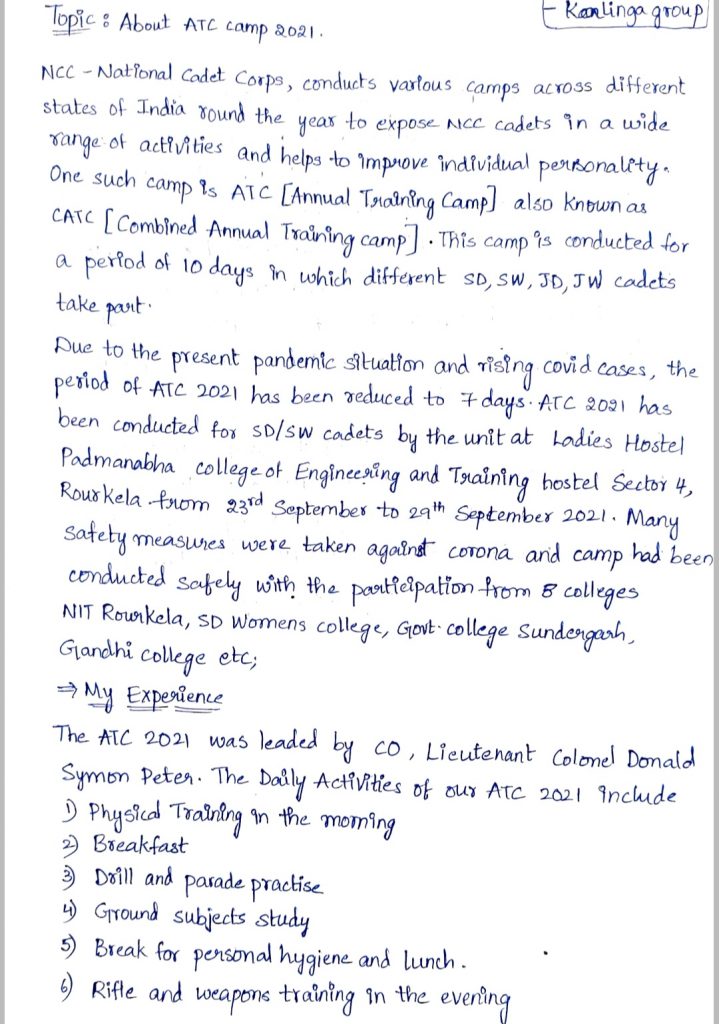 Topic : About ATC camp 2021.
- Kaalinga group
NCC - National Cadet Corps, conducts various camps across different
states of India round the year to expose NCC cadets in a wide
range of activities and helps to improve individual personality.
One such camp is ATC [Annual Training Camp] also known as
CATC [Combined Annual Training camp]. This camp is conducted for
a period of 10 days in which different SD, SW, JD, JW cadets
take part.
Due to the present pandemic situation and rising covid cases, the
period of ATC 2021 has been reduced to 7 days. ATC 2021 has
been conducted for SD/SW cadets by the unit at Ladies Hostel
Padmanabha college of Engineering and Training hostel Sector 4,
Rourkela from 23rd September to 29th September 2021. Many
safety measures were taken against corona and camp had been
conducted safely with the participation from 8 colleges
NIT Rourkela, SD Womens college, Govt. college Sundergarh,
Gandhi college etc;
⇒ My Experience
The ATC 2021 was leaded by CO, Lieutenant Colonel Donald
Symon Peter. The Daily Activities of our ATC 2021 include
1) Physical Training in the morning
2) Breakfast
3) Drill and parade practise
4) Ground subjects study
5) Break for personal hygiene and lunch.
6) Rifle and weapons training in the evening